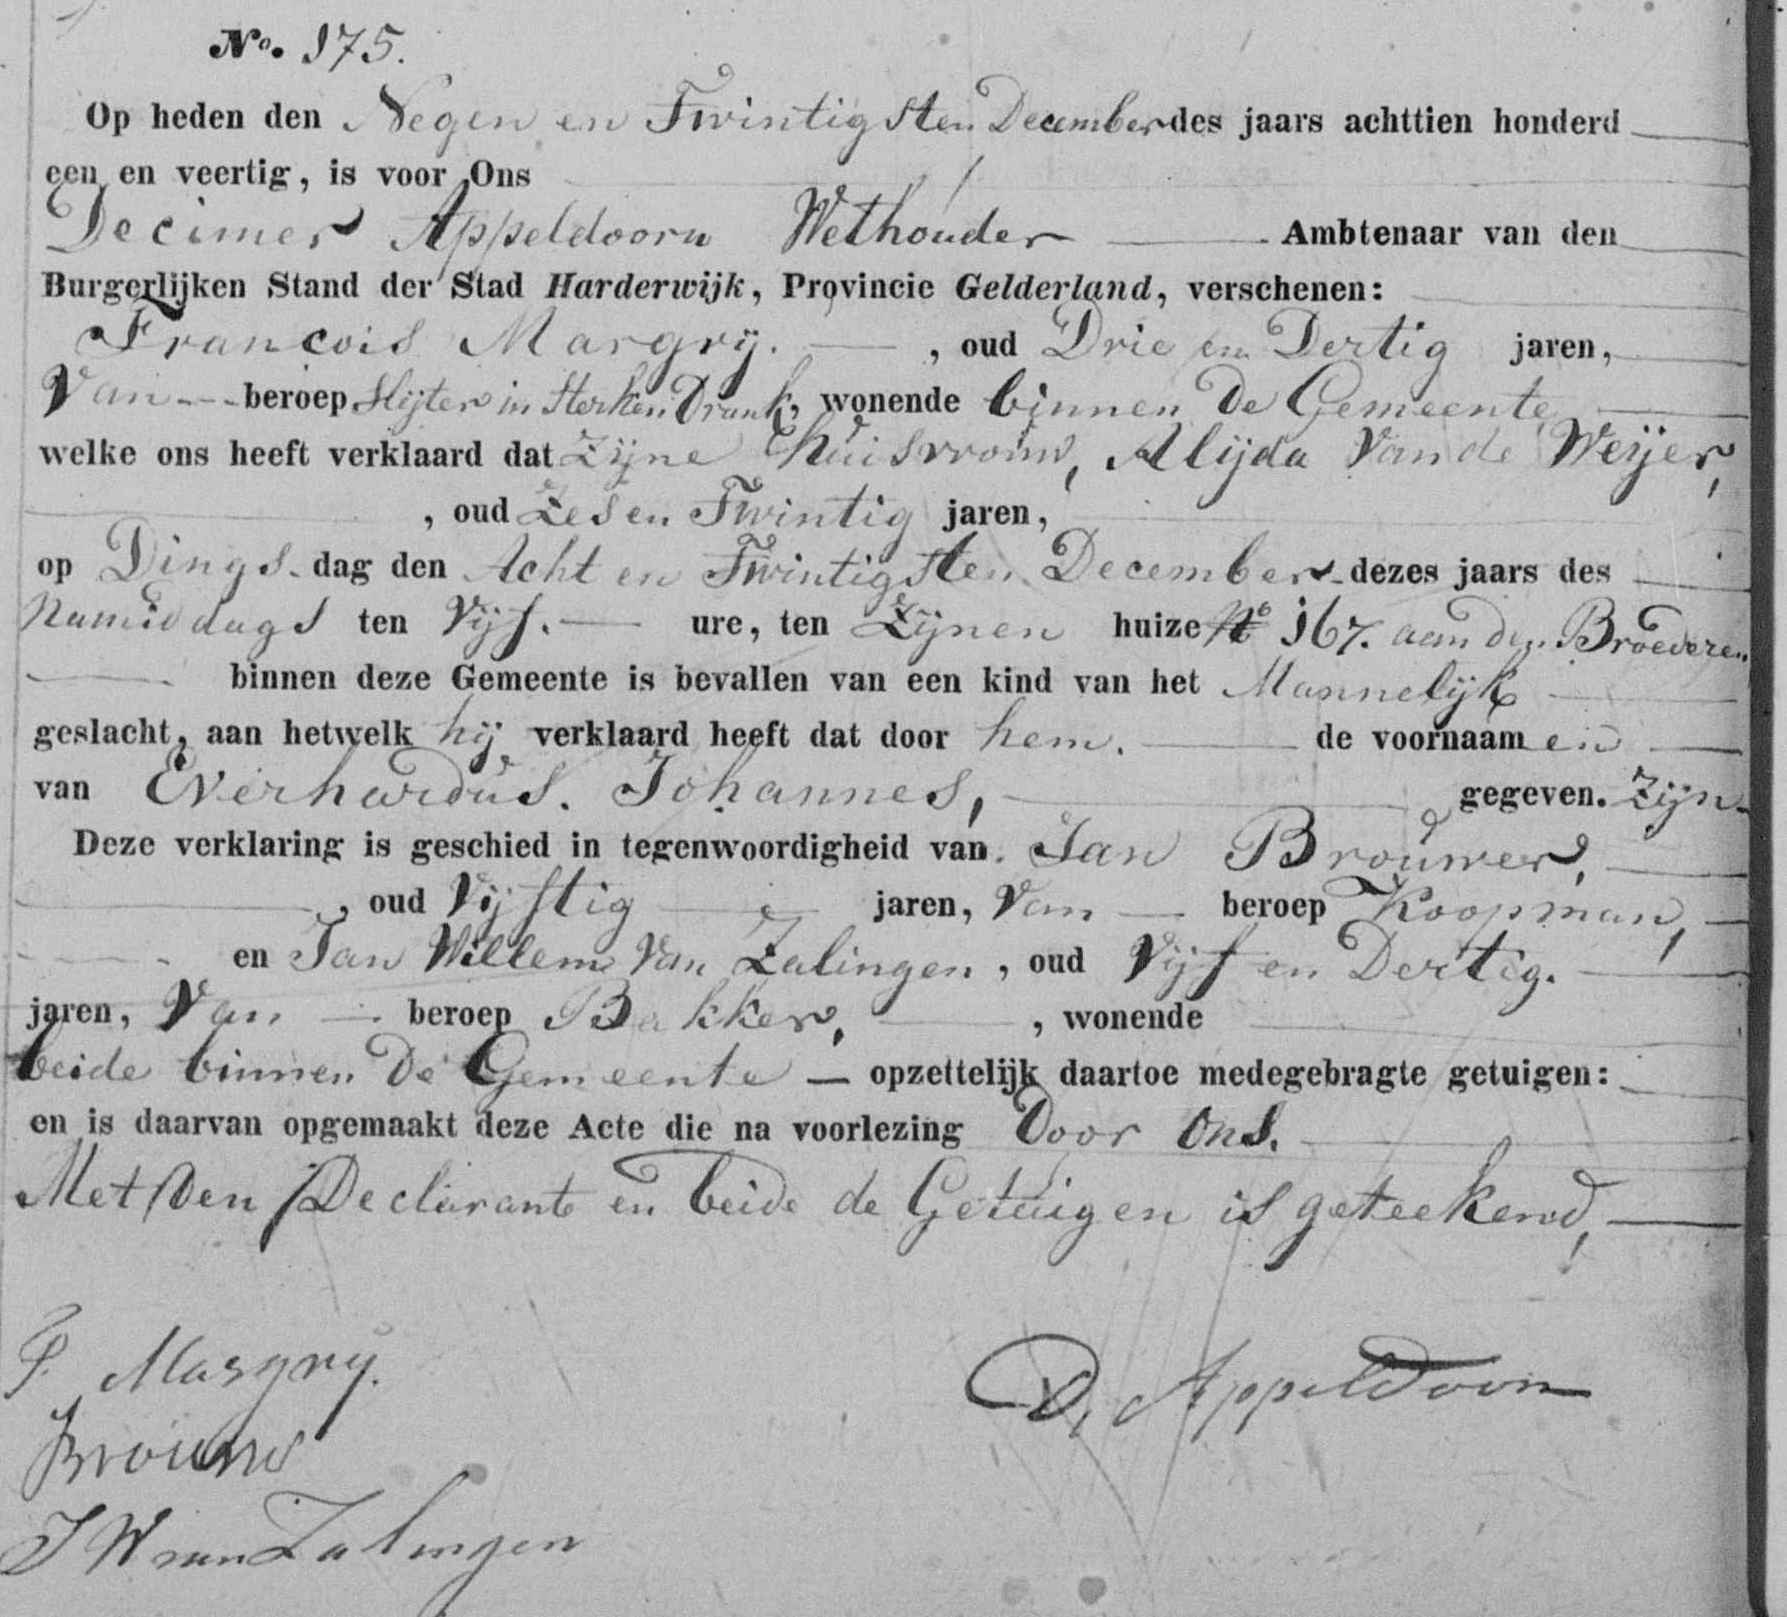 No. 175.
Op heden den Negen en Twintigsten December des jaars achttien honderd
een en veertig, is voor Ons
Decimer Appeldoorn Wethouder Ambtenaar van den
Burgerlijken Stand der Stad Harderwijk, Provincie Gelderland, verschenen:
Francois Margrij. , oud Drie en Dertig jaren,
Van beroep Slijter in Sterken Drank, wonende binnen De Gemeente
welke ons heeft verklaard dat Zijne huisvrouw, Alijda Van de Weijer,
, oud Zes en Twintig jaren,
op Dings-dag den Acht en Twintigsten December dezes jaars des
Namiddags ten Vijf. ure, ten Zijnen huize No 167. aan den Broederen
binnen deze Gemeente is bevallen van een kind van het Mannelijk
geslacht, aan hetwelk hij verklaard heeft dat door hem. de voornaamen
van Everhardus. Johannes, gegeven. Zijn.
Deze verklaring is geschied in tegenwoordigheid van. Jan Brouwer,
, oud Vijftig jaren, Van beroep Koopman,
en Jan Willem Van Zalingen, oud Vijf en Dertig.
jaren, Van beroep Bakker, , wonende
beide binnen De Gemeente opzettelijk daartoe medegebragte getuigen:
en is daarvan opgemaakt deze Acte die na voorlezing Door Ons.
Met Den Declarante en beide de Getuigen is geteekend,
F. Margrij.
D. Appeldoorn
JBrouwer
J W van Zalingen